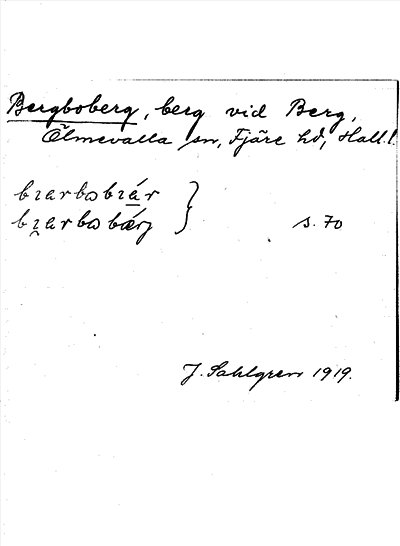 Bergboberg, berg vid Berg,
Ölmevalla sn, Fjäre hd, Hall.l.
bɿarbωbɿár
bɿ̯arbωbǽrj } s. 70
J. Sahlgren 1919.